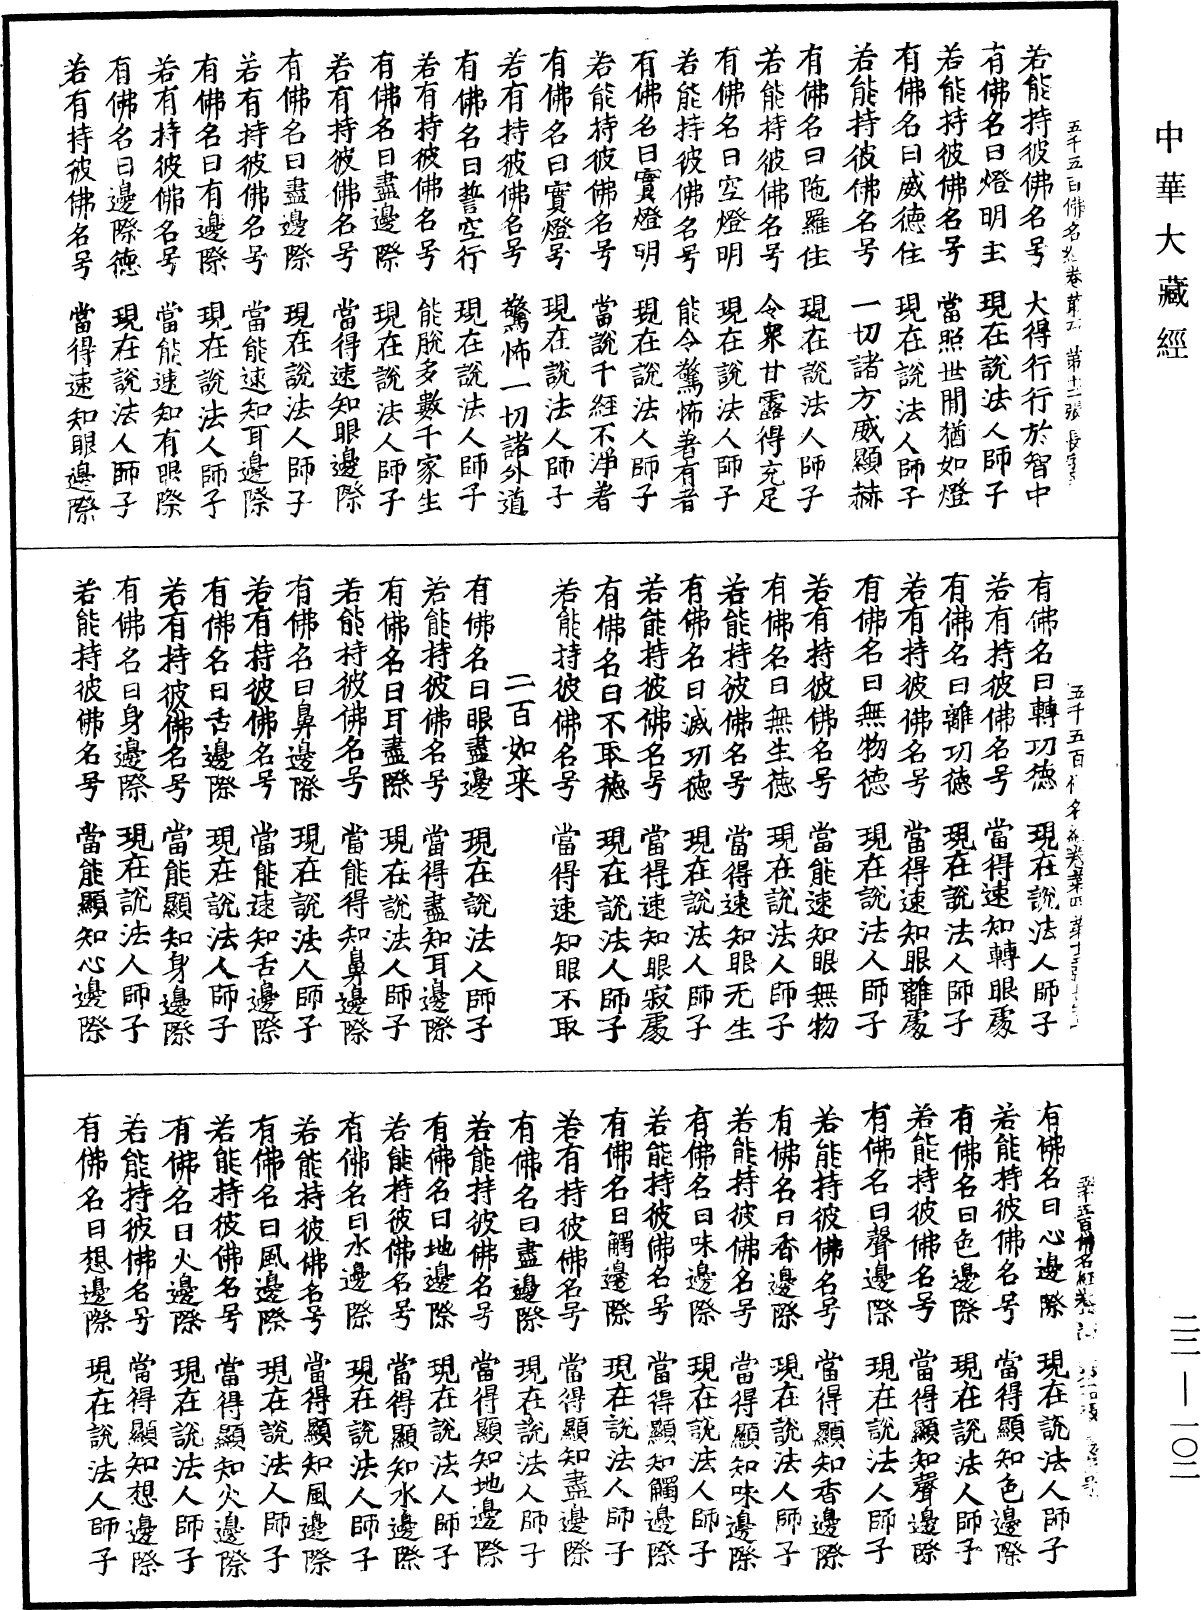 中華大藏經
若能持彼佛名号　大得行行於智中
有佛名曰燈明主　現在說法人師子
若能持彼佛名号　當照世間猶如燈
有佛名曰威德住　現在說法人師子
若能持彼佛名号　一切諸方威顯赫
有佛名曰陁羅住　現在說法人師子
若能持彼佛名号　令衆甘露得充足
有佛名曰空燈明　現在說法人師子
若能持彼佛名号　能令驚怖著有者
有佛名曰實燈明　現在說法人師子
若能持彼佛名号　當說千經不淨者
有佛名曰實燈号　現在說法人師子
若有持彼佛名号　驚怖一切諸外道
有佛名曰誓空行　現在說法人師子
若有持彼佛名号　能脫多數千家生
有佛名曰盡邊際　現在說法人師子
若有持彼佛名号　當得速知眼邊際
有佛名曰盡邊際　現在說法人師子
若有持彼佛名号　當能速知耳邊際
有佛名曰有邊際　現在說法人師子
若有持彼佛名号　當能速知有眼際
有佛名曰邊際德　現在說法人師子
若有持彼佛名号　當得速知眼邊際
有佛名曰轉功德　現在說法人師子
若有持彼佛名号　當得速知轉眼處
有佛名曰離功德　現在說法人師子
若有持彼佛名号　當得速知眼離處
有佛名曰無物德　現在說法人師子
若有持彼佛名号　當能速知眼無物
有佛名曰無生德　現在說法人師子
若能持彼佛名号　當得速知眼无生
有佛名曰滅功德　現在說法人師子
若能持彼佛名号　當得速知眼寂處
有佛名曰不取德　現在說法人師子
若能持彼佛名号　當得速知眼不取
二百如来
有佛名曰眼盡邊　現在說法人師子
若能持彼佛名号　當得盡知耳邊際
有佛名曰耳盡際　現在說法人師子
若能持彼佛名号　當能得知鼻邊際
有佛名曰鼻邊際　現在說法人師子
若有持彼佛名号　當能速知舌邊際
有佛名曰舌邊際　現在說法人師子
若有持彼佛名号　當能顯知身邊際
有佛名曰身邊際　現在說法人師子
若能持彼佛名号　當能顯知心邊際
有佛名曰心邊際　現在說法人師子
若能持彼佛名号　當得顯知色邊際
有佛名曰色邊際　現在說法人師子
若能持彼佛名号　當得顯知聲邊際
有佛名曰聲邊際　現在說法人師子
若能持彼佛名号　當得顯知香邊際
有佛名曰香邊際　現在說法人師子
若能持彼佛名号　當得顯知味邊際
有佛名曰味邊際　現在說法人師子
若能持彼佛名号　當得顯知觸邊際
有佛名曰觸邊際　現在說法人師子
若有持彼佛名号　當得顯知盡邊際
有佛名曰盡邊際　現在說法人師子
若能持彼佛名号　當得顯知地邊際
有佛名曰地邊際　現在說法人師子
若能持彼佛名号　當得顯知水邊際
有佛名曰水邊際　現在說法人師子
若能持彼佛名号　當得顯知風邊際
有佛名曰風邊際　現在說法人師子
若能持彼佛名号　當得顯知火邊際
有佛名曰火邊際　現在說法人師子
若能持彼佛名号　當得顯知想邊際
有佛名曰想邊際　現在說法人師子
二二—一〇二